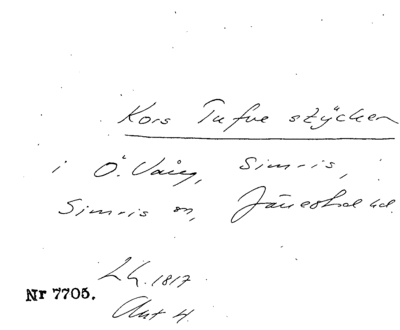 Kors Tufve stycken
i Ö. Vång, Simris,
Simris sn, Järrestad hd.
LH. 1817
Nr 7705.
Akt 4.